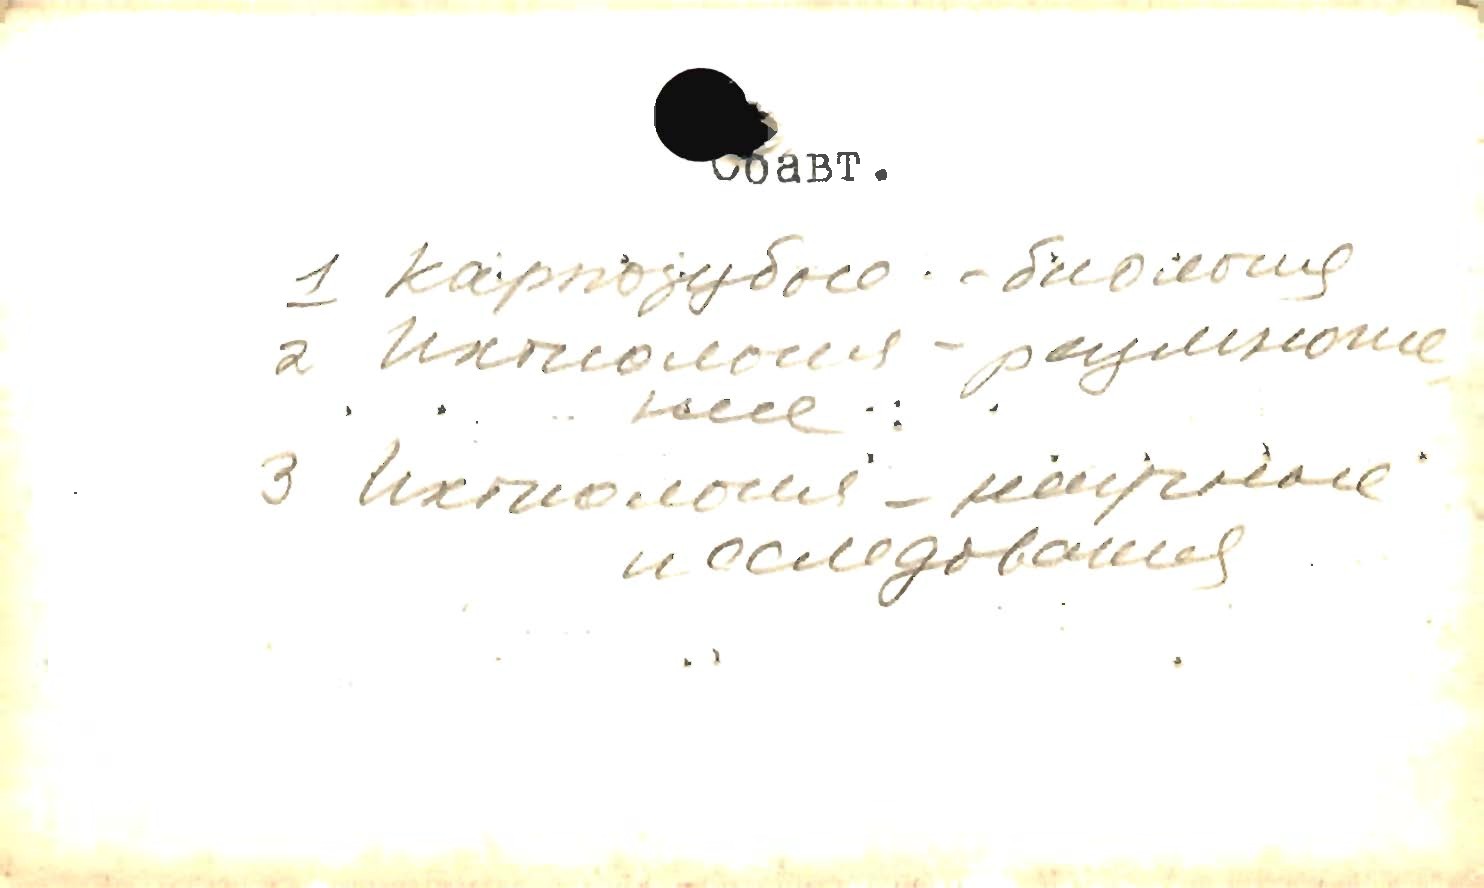 Соавт.
1 Карпозубые - биология
2 Ихтиология - размноже
ние
3 Ихтиология - научные
исследования